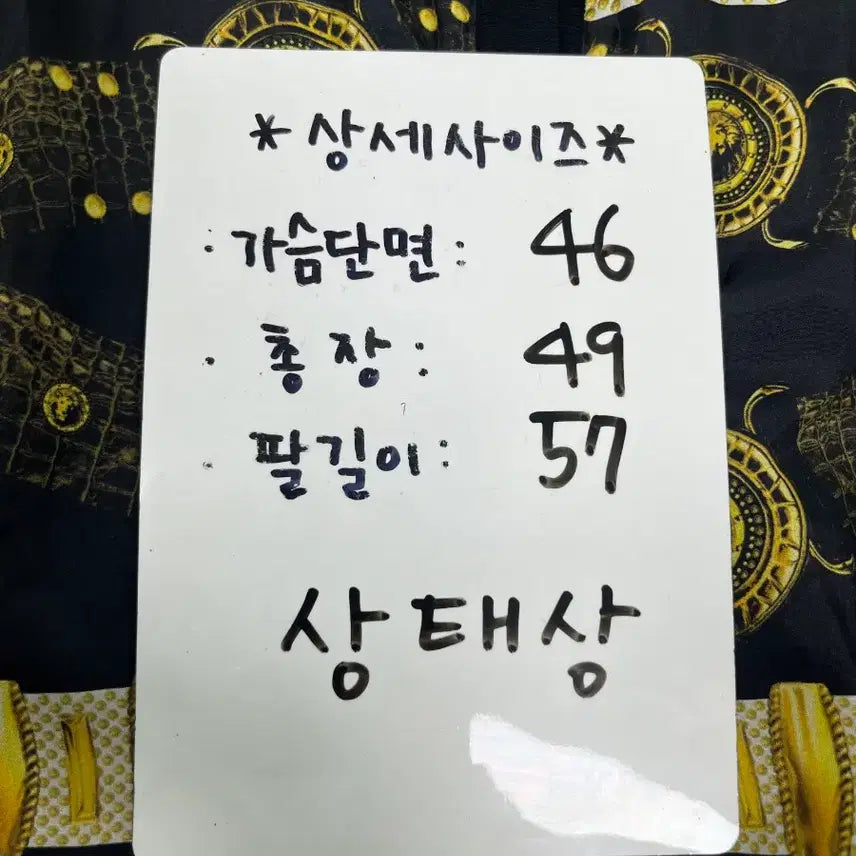 *상세사이즈*
: 가슴단면 : 46
· 총장 : 49
· 팔길이 : 57
상태상